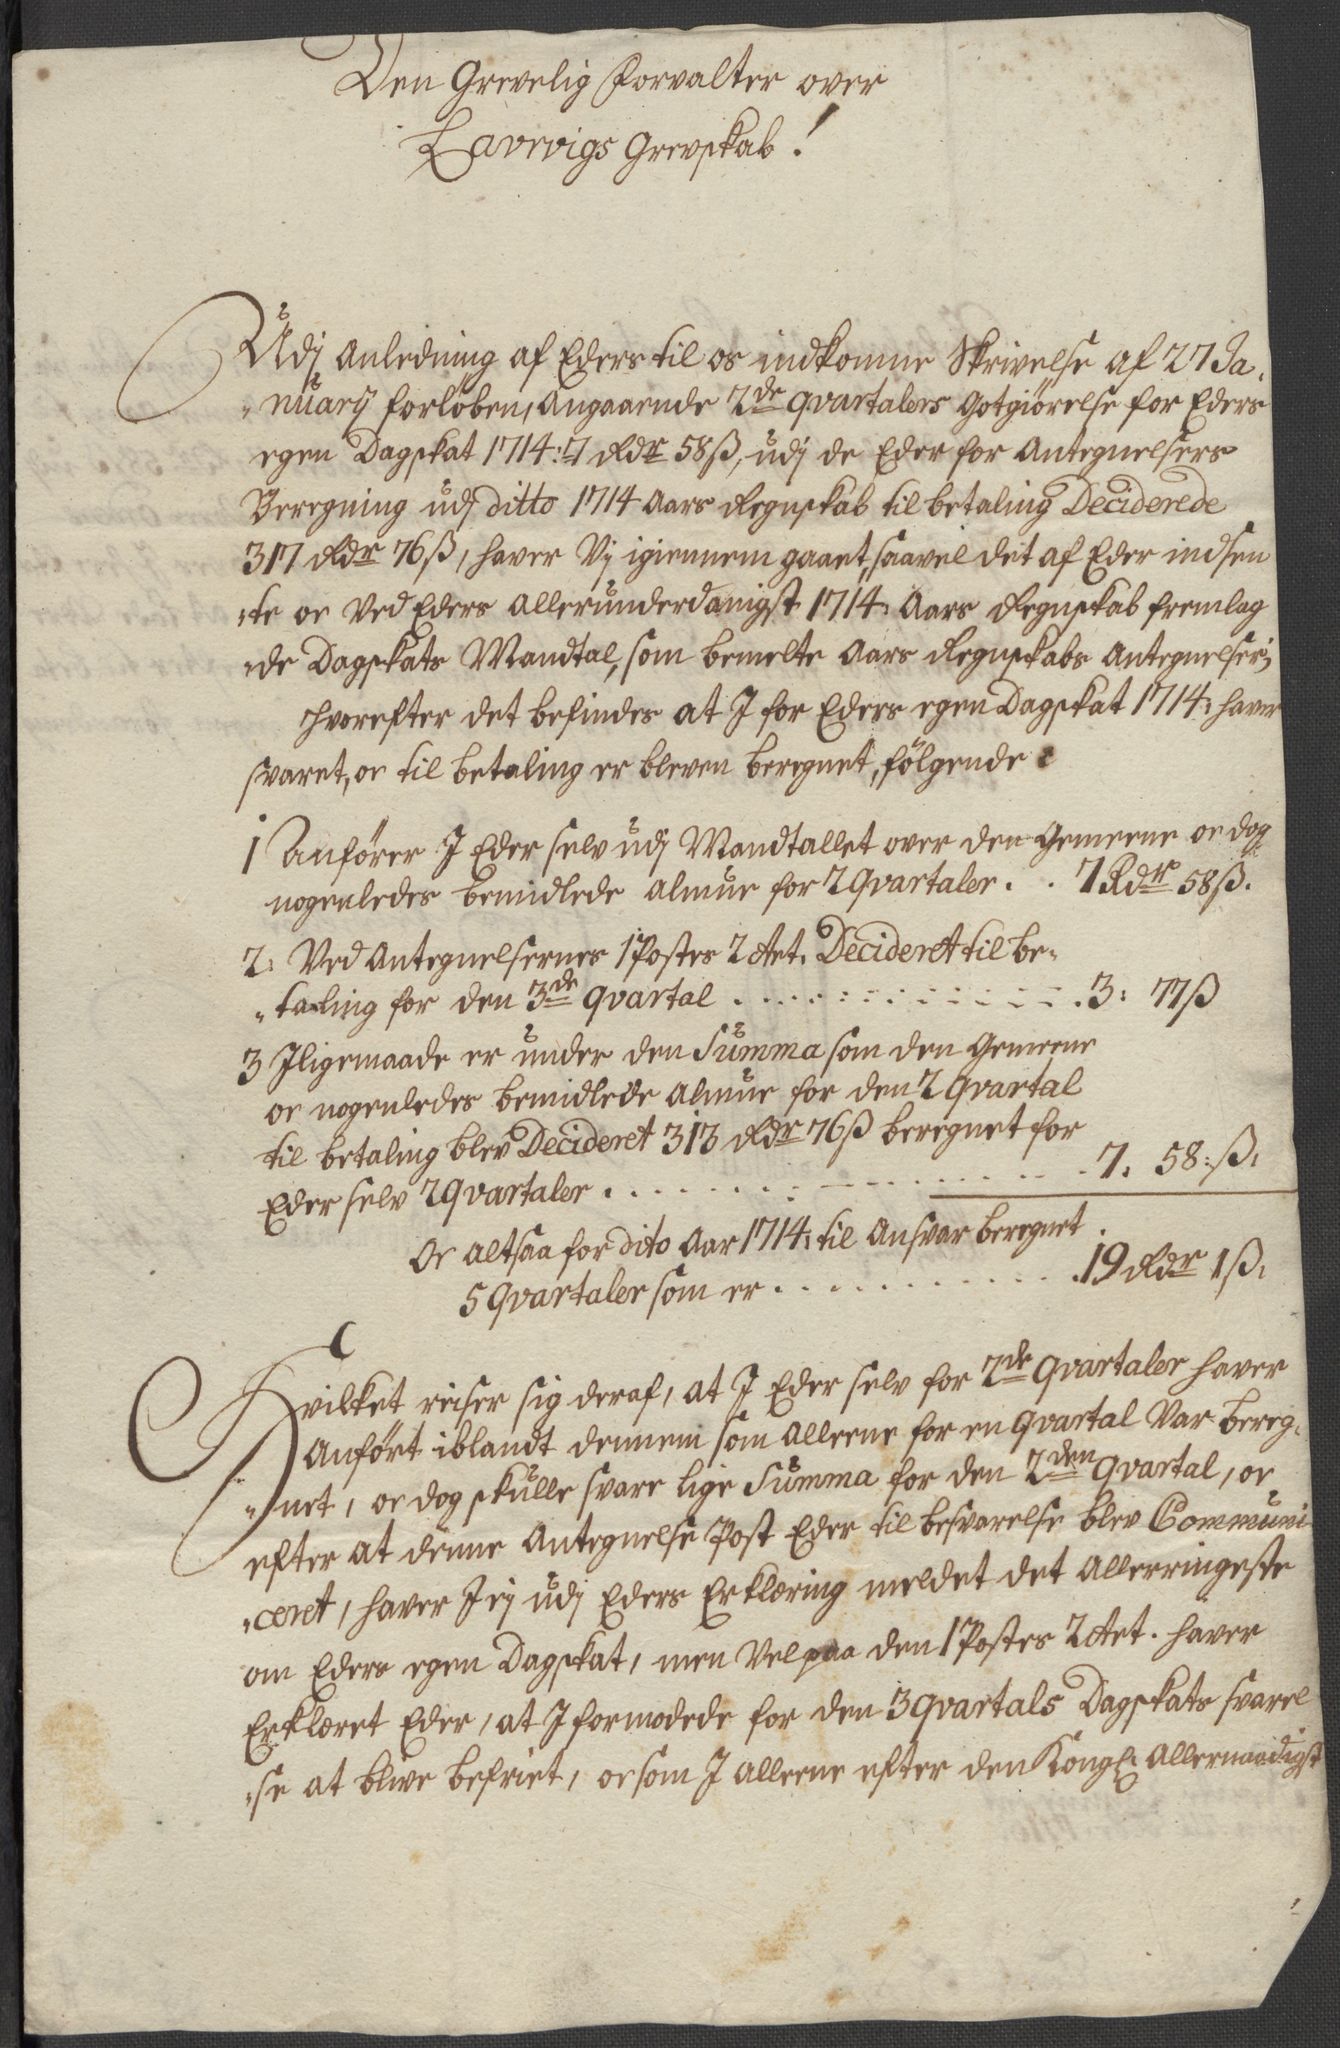 Den Grevelig Forvalter over
Laurvigs Grevskab!
Udj Anledning af Eders til os indkomne Skrivelse af 27 Ja,
"nuarij forløben, Angaaende 2de qvartalers Gotgiørelse for Eders
egen Dagskat 1714: 7 Rdr 58ß, udj de Eder for Antegnelsers
Beregning udj ditto 1714 Aars Regnskab til betaling Deciderede
317 Rdr 76ß, haver Vj igiennem gaaet, saavel det af Eder indsen
"te oc Ved Eders Allerunderdanigst 1714: Aars Regnskab fremlag
"de Dagskats Mandtal, som bemelte Aars Regnskabs Antegnelser;
hvorefter det befindes at I for Eders egen Dagskat 1714: haver
svaret, oc til betaling er bleven beregnet, følgende:
1 Anfører I Eder selv udj Mandtallet over den Gemeene oc dog
nogenledes bemidlede Almue for 2 Qvartaler. . 7 Rdr 58ß.
2: Ved Antegnelsernes 1 Postes 2 Act. Decideret til be-
"taling for den 3de qvartal . . . . . . . . 3: 77ß
3 Iligemaade er under den Summa som den Gemeene
oc nogenledes bemidlede Almue for den 2 Qvartal
til betaling blev Decideret 313 Rdr 76ß beregnet for
Eder selv 2 Qvartaler . . . . . . . . 7: 58:ß:
Oc altsaa for dito Aar 1714: til Ansvar beregnet
5 Qvartaler som er . . . . . . . . 19 Rdr 1ß:
Hvilket reiser sig deraf, at I Eder selv for 2de Qvartaler haver
Anført iblandt dennem som Alleene for en qvartal Var bereg,
"net, oc dog skulle svare lige Summa for den 2den qvartal, oc
efter at denne Antegnelse Post Eder til besvarelse blev Communi
"ceret, haver I ej udj Eders Erklæring meldet det Allerringeste
om Eders egen Dagskat, men Vel paa den 1 Postes 2 Act. haver
Erklæret Eder, at I formodede for den 3 Qvartals Dagskats svarel
"se at blive befriet, oc som I Alleene efter den Kongl: Allernaadigst